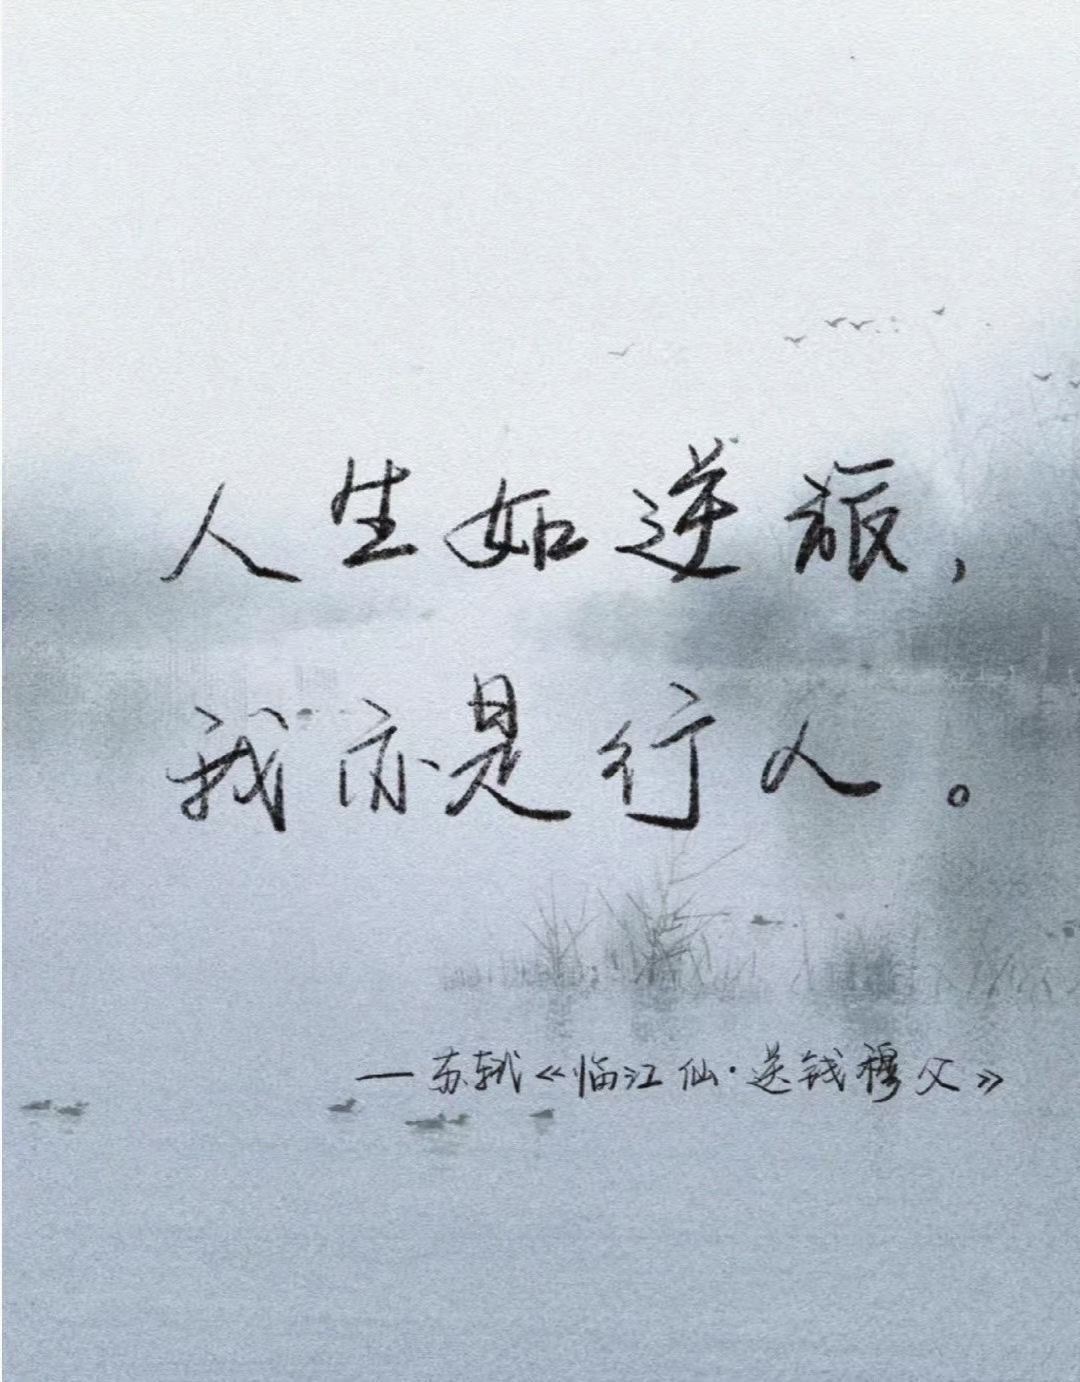 人生如逆旅，
我亦是行人。
—苏轼《临江仙·送钱穆父》